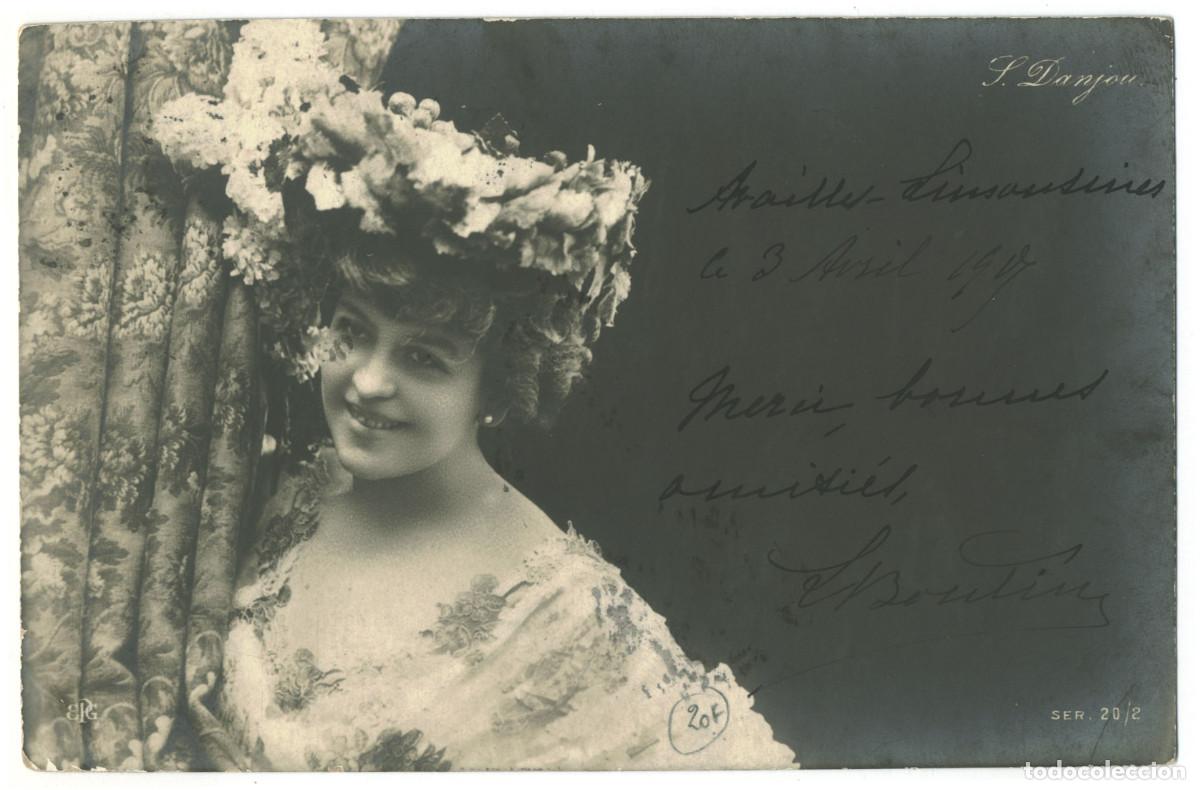 S. Danjou.
Availles-Limousines
le 3 Avril
Merci, bonnes
amitiés,
Boutin
20F
SER. 20/2
todocoleccion